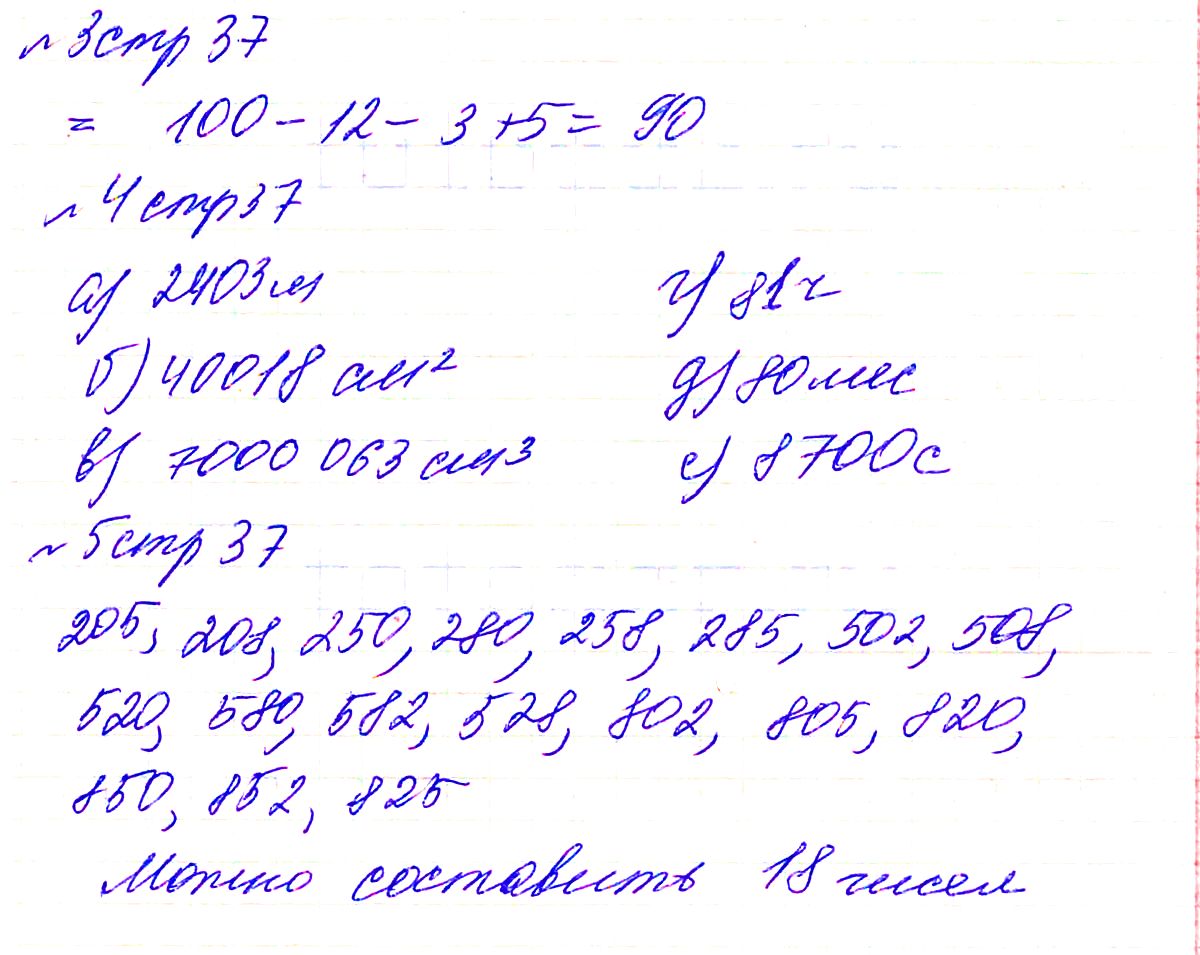 №3 стр 37
= 100 - 12 - 3 + 5 = 90
№4 стр 37
а) 2403 м г) 81 ч
б) 40018 см² д) 80 мес
в) 7000 063 см³ е) 8700 с
№5 стр 37
205, 208, 250, 280, 258, 285, 502, 508,
520, 580, 582, 528, 802, 805, 820,
850, 852, 825
Можно составить 18 чисел